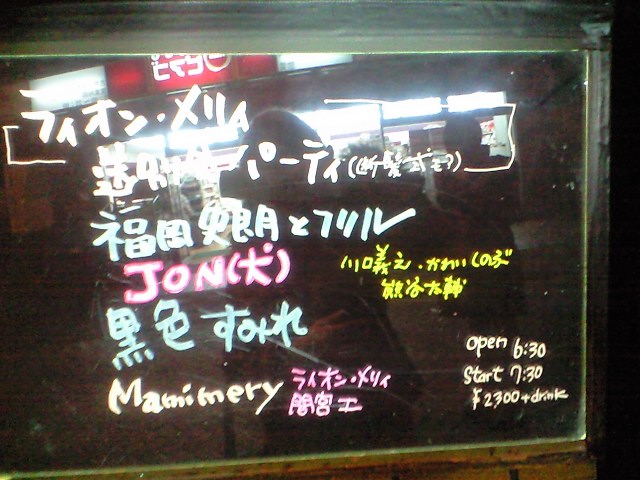 ライオン・メリィ
送別会パーティ(断髪式も?)
福岡史朗とフリル
川口義之・かわいしのぶ
熊谷太輔
JON(犬)
黒色すみれ
Mamimery
ライオン・メリィ
間宮工
open 6:30
start 7:30
¥2,300+drink